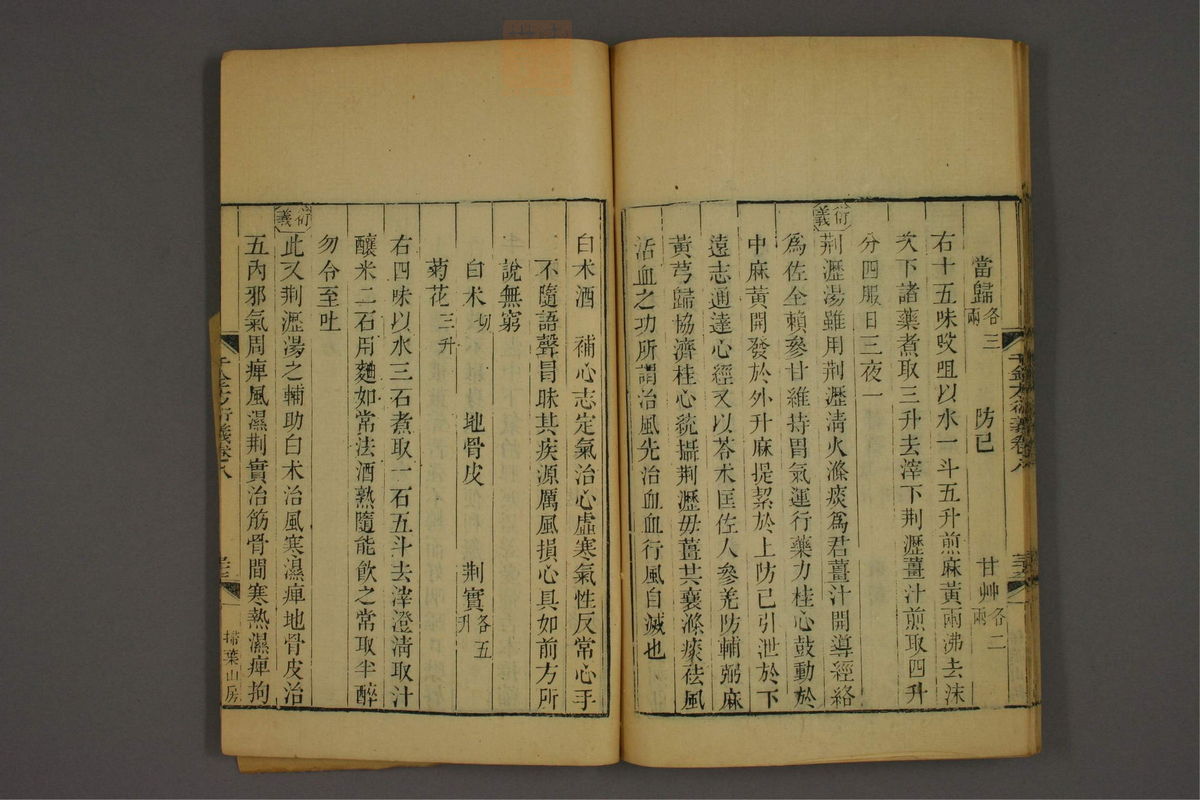 當歸各三兩　防已　甘艸各二兩
右十五味㕮咀以水一斗五升煎麻黃兩沸去沫
次下諸藥煮取三升去滓下荆瀝薑汁煎取四升
分四服日三夜一
衍義
荆瀝湯雖用荆瀝清火滌痰爲君薑汁開導經絡
爲佐全賴參甘維持胃氣運行藥力桂心鼓動於
中麻黃開發於外升麻提挈於上防已引泄於下
遠志通達心經又以苓术匡佐人參羌防輔弼麻
黃芎歸協濟桂心統攝荆瀝毋薑共襄滌痰祛風
活血之功所謂治風先治血血行風自滅也
千金方衍義卷八
白术酒　補心志定氣治心虛寒氣性反常心手
不隨語聲冒昧其疾源厲風損心具如前方所
說無窮
白术切　地骨皮　荆實各五升
菊花三升
右四味以水三石煮取一石五斗去滓澄清取汁
釀米二石用麯如常法酒熟隨能飲之常取半醉
勿令至吐
衍義
此又荆瀝湯之輔助白术治風寒濕痺地骨皮治
五內邪氣周痺風濕荆實治筋骨間寒熱濕痺拘
千金方衍義卷八
掃葉山房